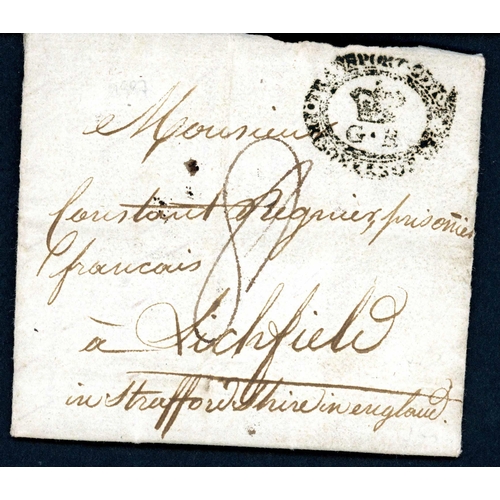 TRANSPORT OFFICE
G·R
PRISONERS OF WAR
Monsieur
Constant Regnier, prisonnier
francais
8
à Lichfield
in Strafford Shire in england.